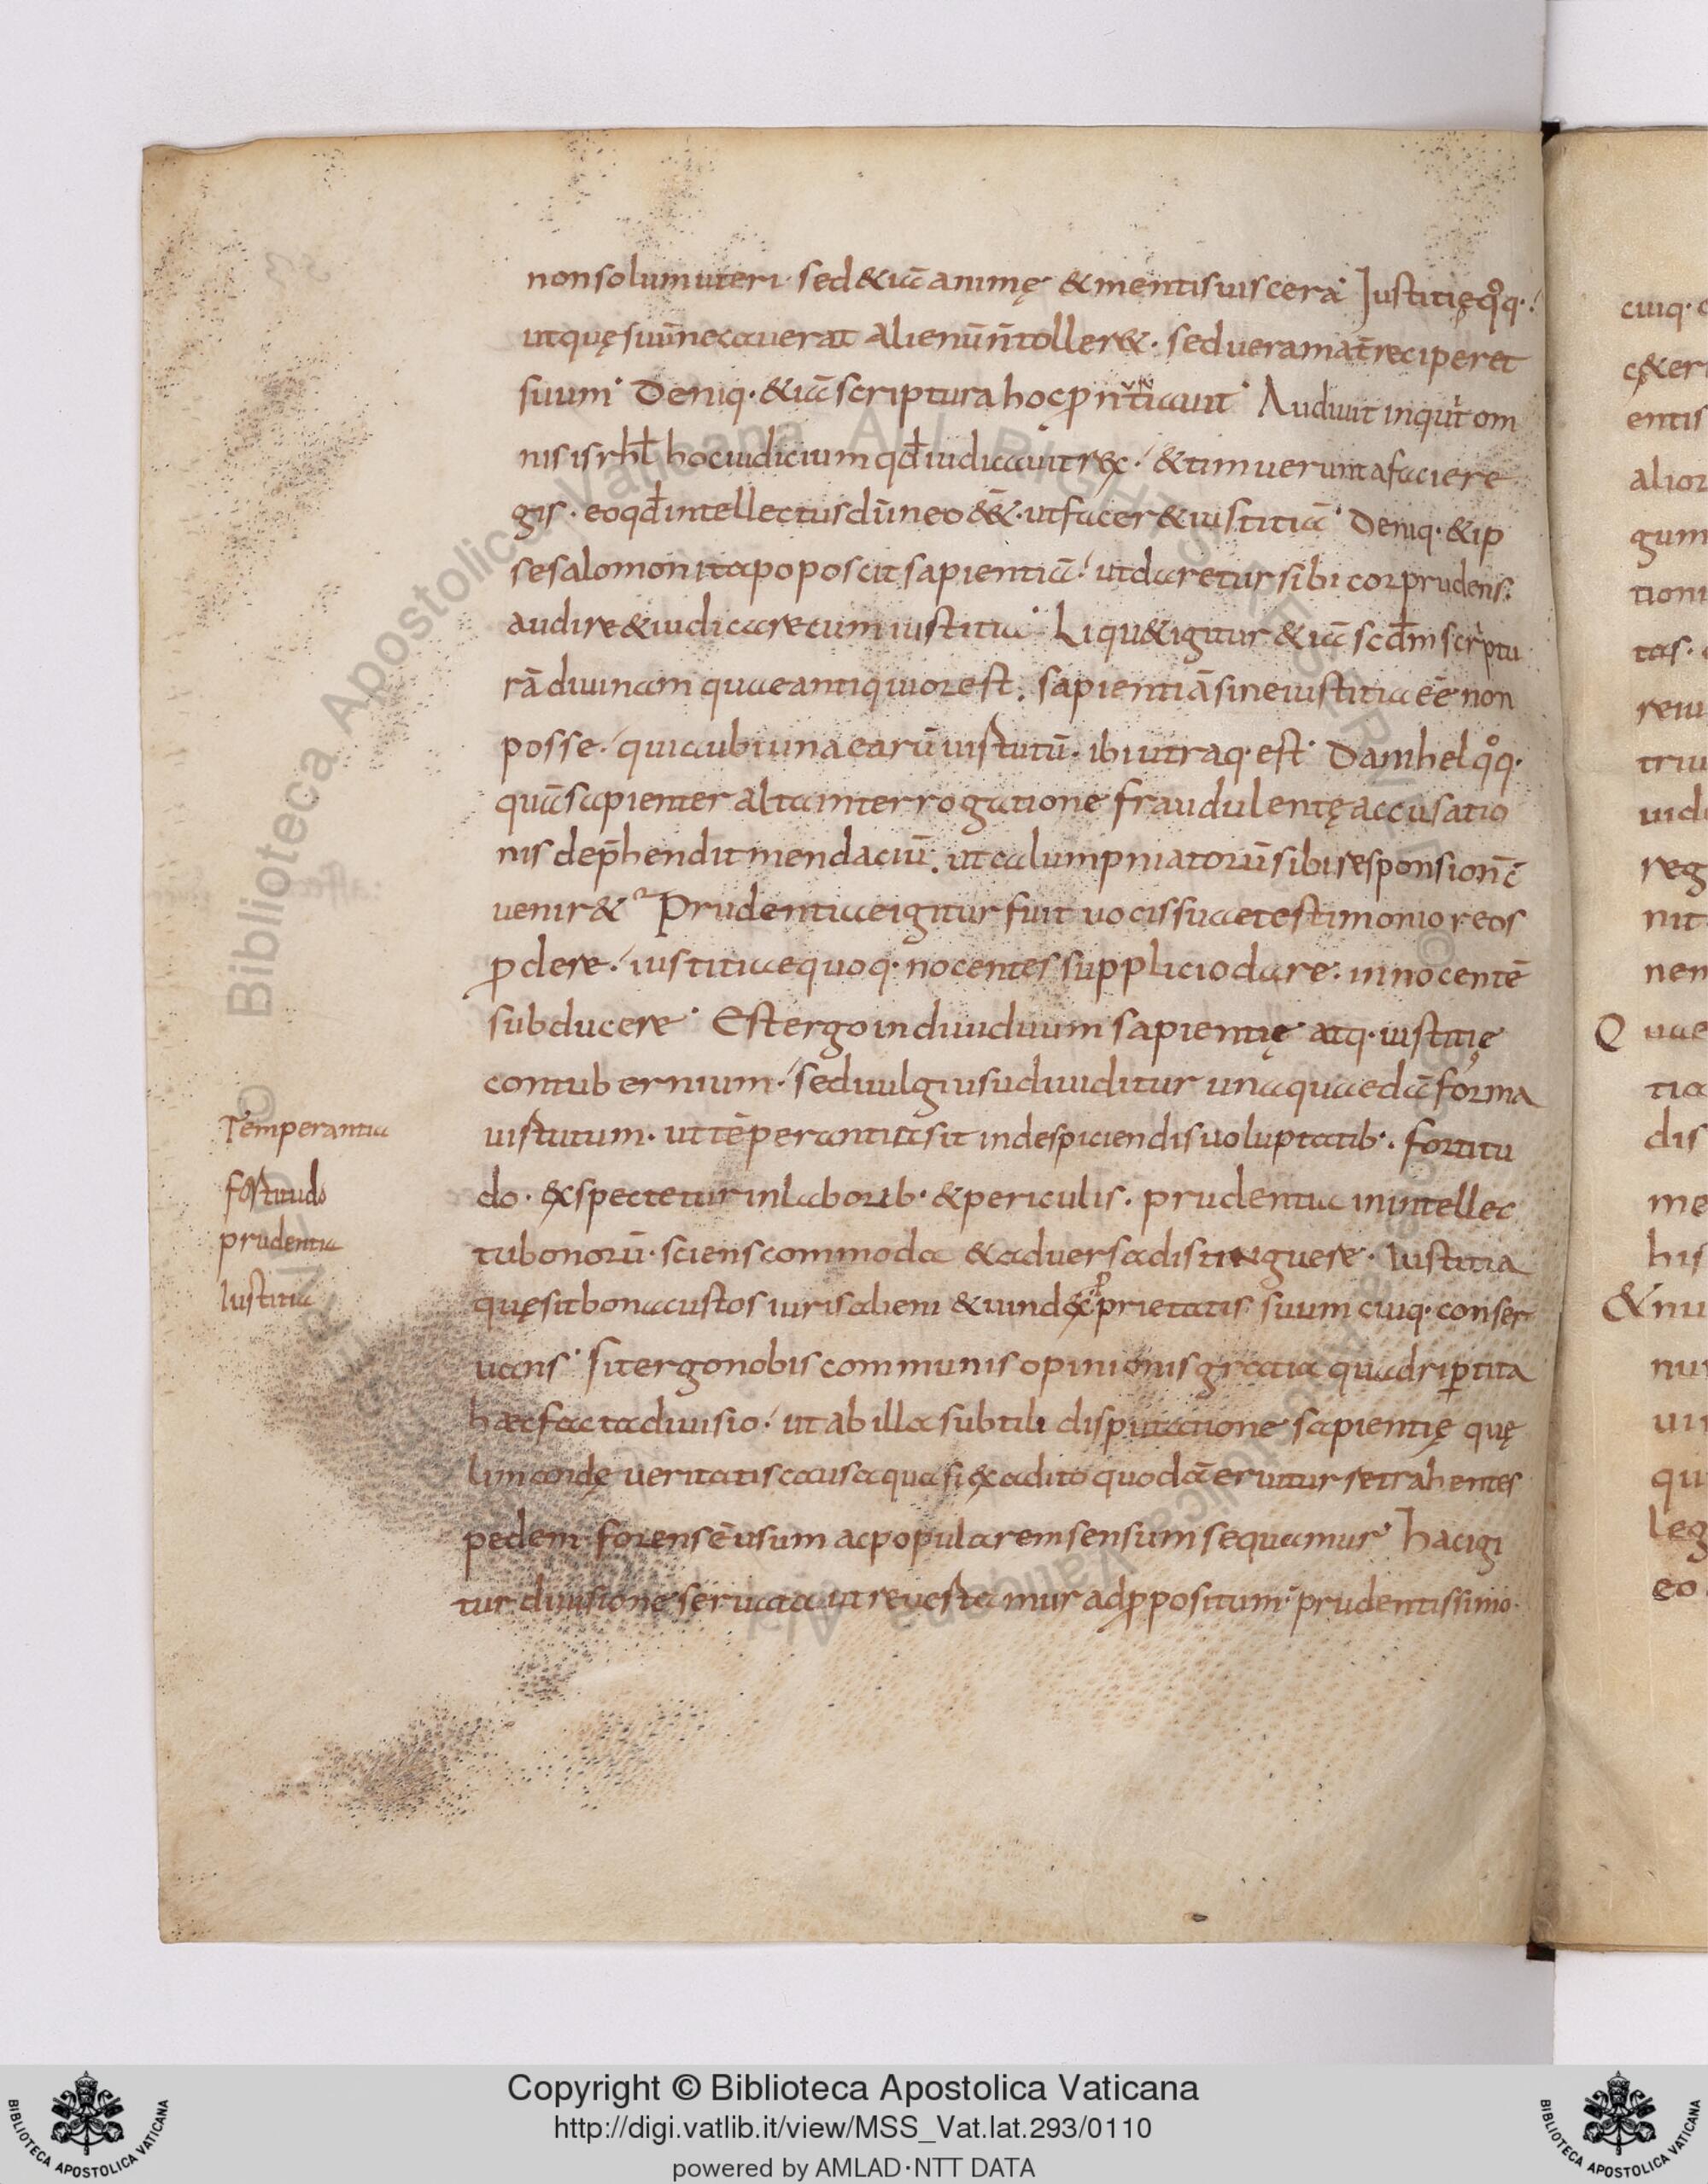 non solum uteri· sed &iā animę & mentis uiscera· Iustitię qͦq·
ut quę suū necauerat alienū n̄ toller&· sed ueram at̄ reciperet
suum· Deniq·&iā scriptura hoc ꝓnūtiauit· Audiuit inquit om
nis isrhł hoc iudicium qđ iudicauit rex· & timuerunt a facie re
gis· eo qđ intellectus dī in eo ēēt· ut facer& iustitiā· Deniq·& ip
se salomon ita poposcit sapientiā· ut daretur sibi cor prudens·
audire & iudicare cum iustitia· Liqu& igitur &iā scđm scriptu
rā diuinam quae antiquior est· sapientiā sine iustitia eē non
posse· quia ubi una earū uirtutū· ibi utraq· est· Danihel qͦq·
quā sapienter alta interrogatione fraudulentę accusatio
nis dep̄hendit mendaciū· ut calumpniatorū sibi responsio n̄ c̄
uenir& Prudentiae igitur fuit uocis suae testimonio reos
ꝓdere· iustitiae quoq· nocentes supplicio dare· innocentē
subducere· Est ergo indiuiduum sapientię atq· iustitię
contubernium· sed uulgi usu diuiditur una quaedā forma
uirtutum· ut tēperantia sit in despiciendis uoluptatib·· fortitu
do· exspectetur in laborib· & periculis· prudentia in intellec
tu bonorū· sciens commoda & aduersa distinguere· Iustitia
quę sit bona custos iuris alieni & uindex ꝓprietatis suum cuiq· conser
uans· Sit ergo nobis communis opinionis gratia quadriꝑtita
haec facta diuisio· ut ab illa subtili disputatione sapientię quę
limandę ueritatis causa quasi ex adito quodā eruitur retrahentes
pedem forensē usum ac popularem sensum sequamur· hac igi
tur diuisione seruata ut reuertamur ad ꝓpositum· prudentissimo·
Temperantia
fortitudo
prudentia
Iustitia
Copyright © Biblioteca Apostolica Vaticana
http://digi.vatlib.it/view/MSS_Vat.lat.293/0110
powered by AMLAD·NTT DATA